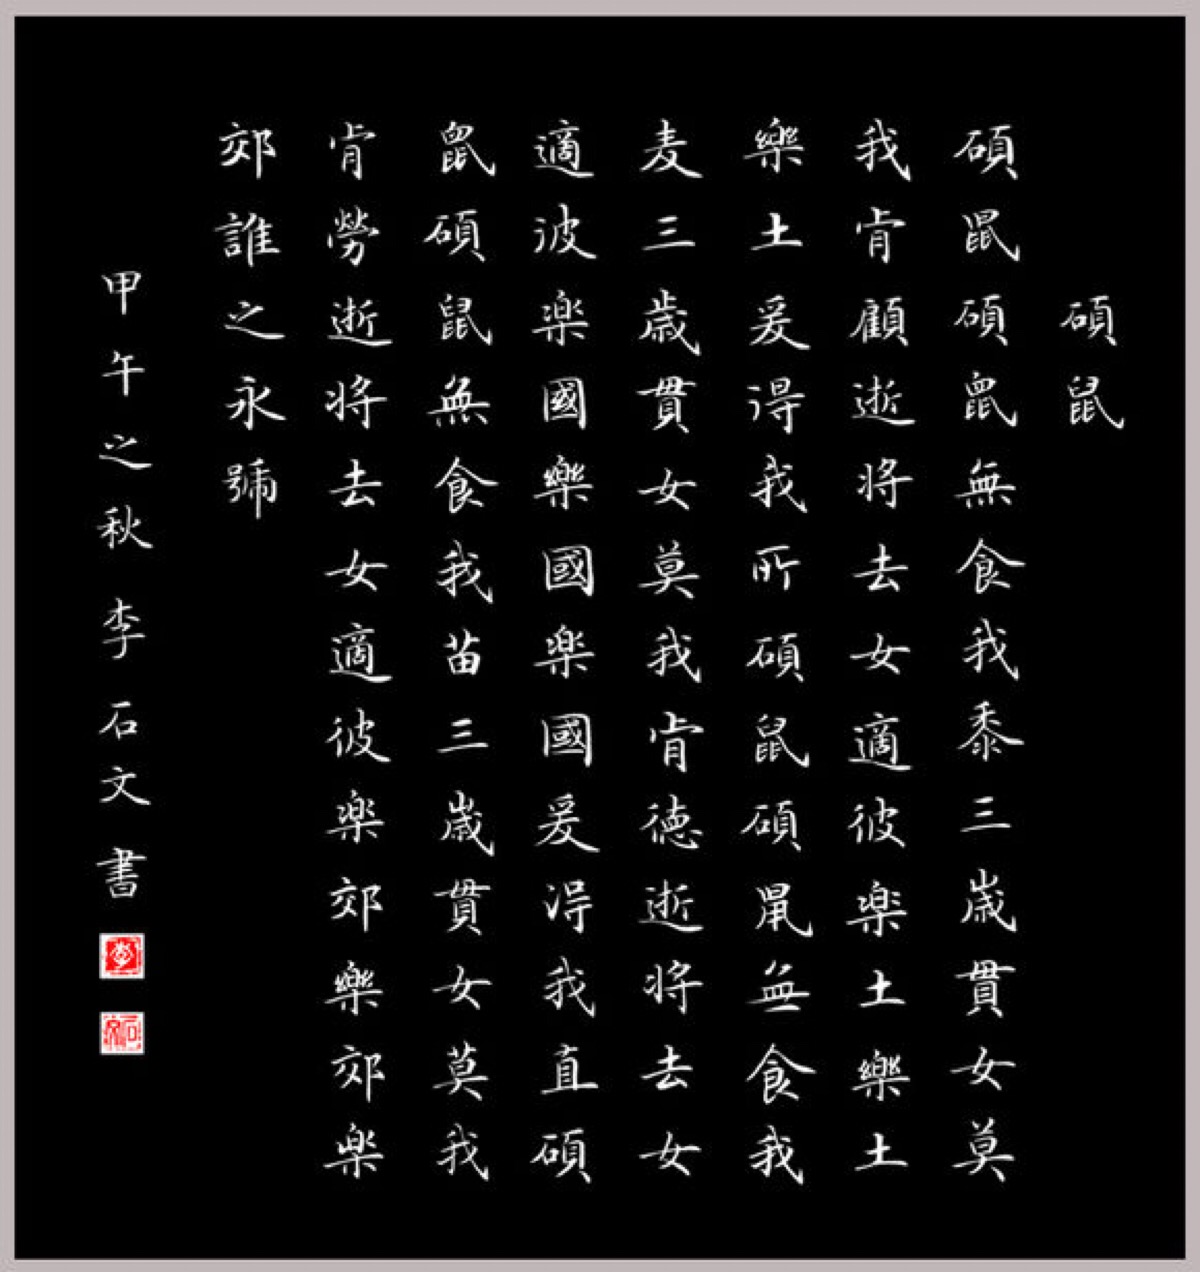 碩鼠
碩鼠碩鼠無食我黍三歲貫女莫
我肯顧逝将去女適彼楽土樂土
樂土爰淂我所碩鼠碩鼠無食我
麦三歲貫女莫我肯德逝将去女
適波楽國樂國楽國爰淂我直碩
鼠碩鼠無食我苗三歲貫女莫我
肯勞逝将去女適彼楽郊樂郊楽
郊誰之永號
甲午之秋李石文書
李
石文